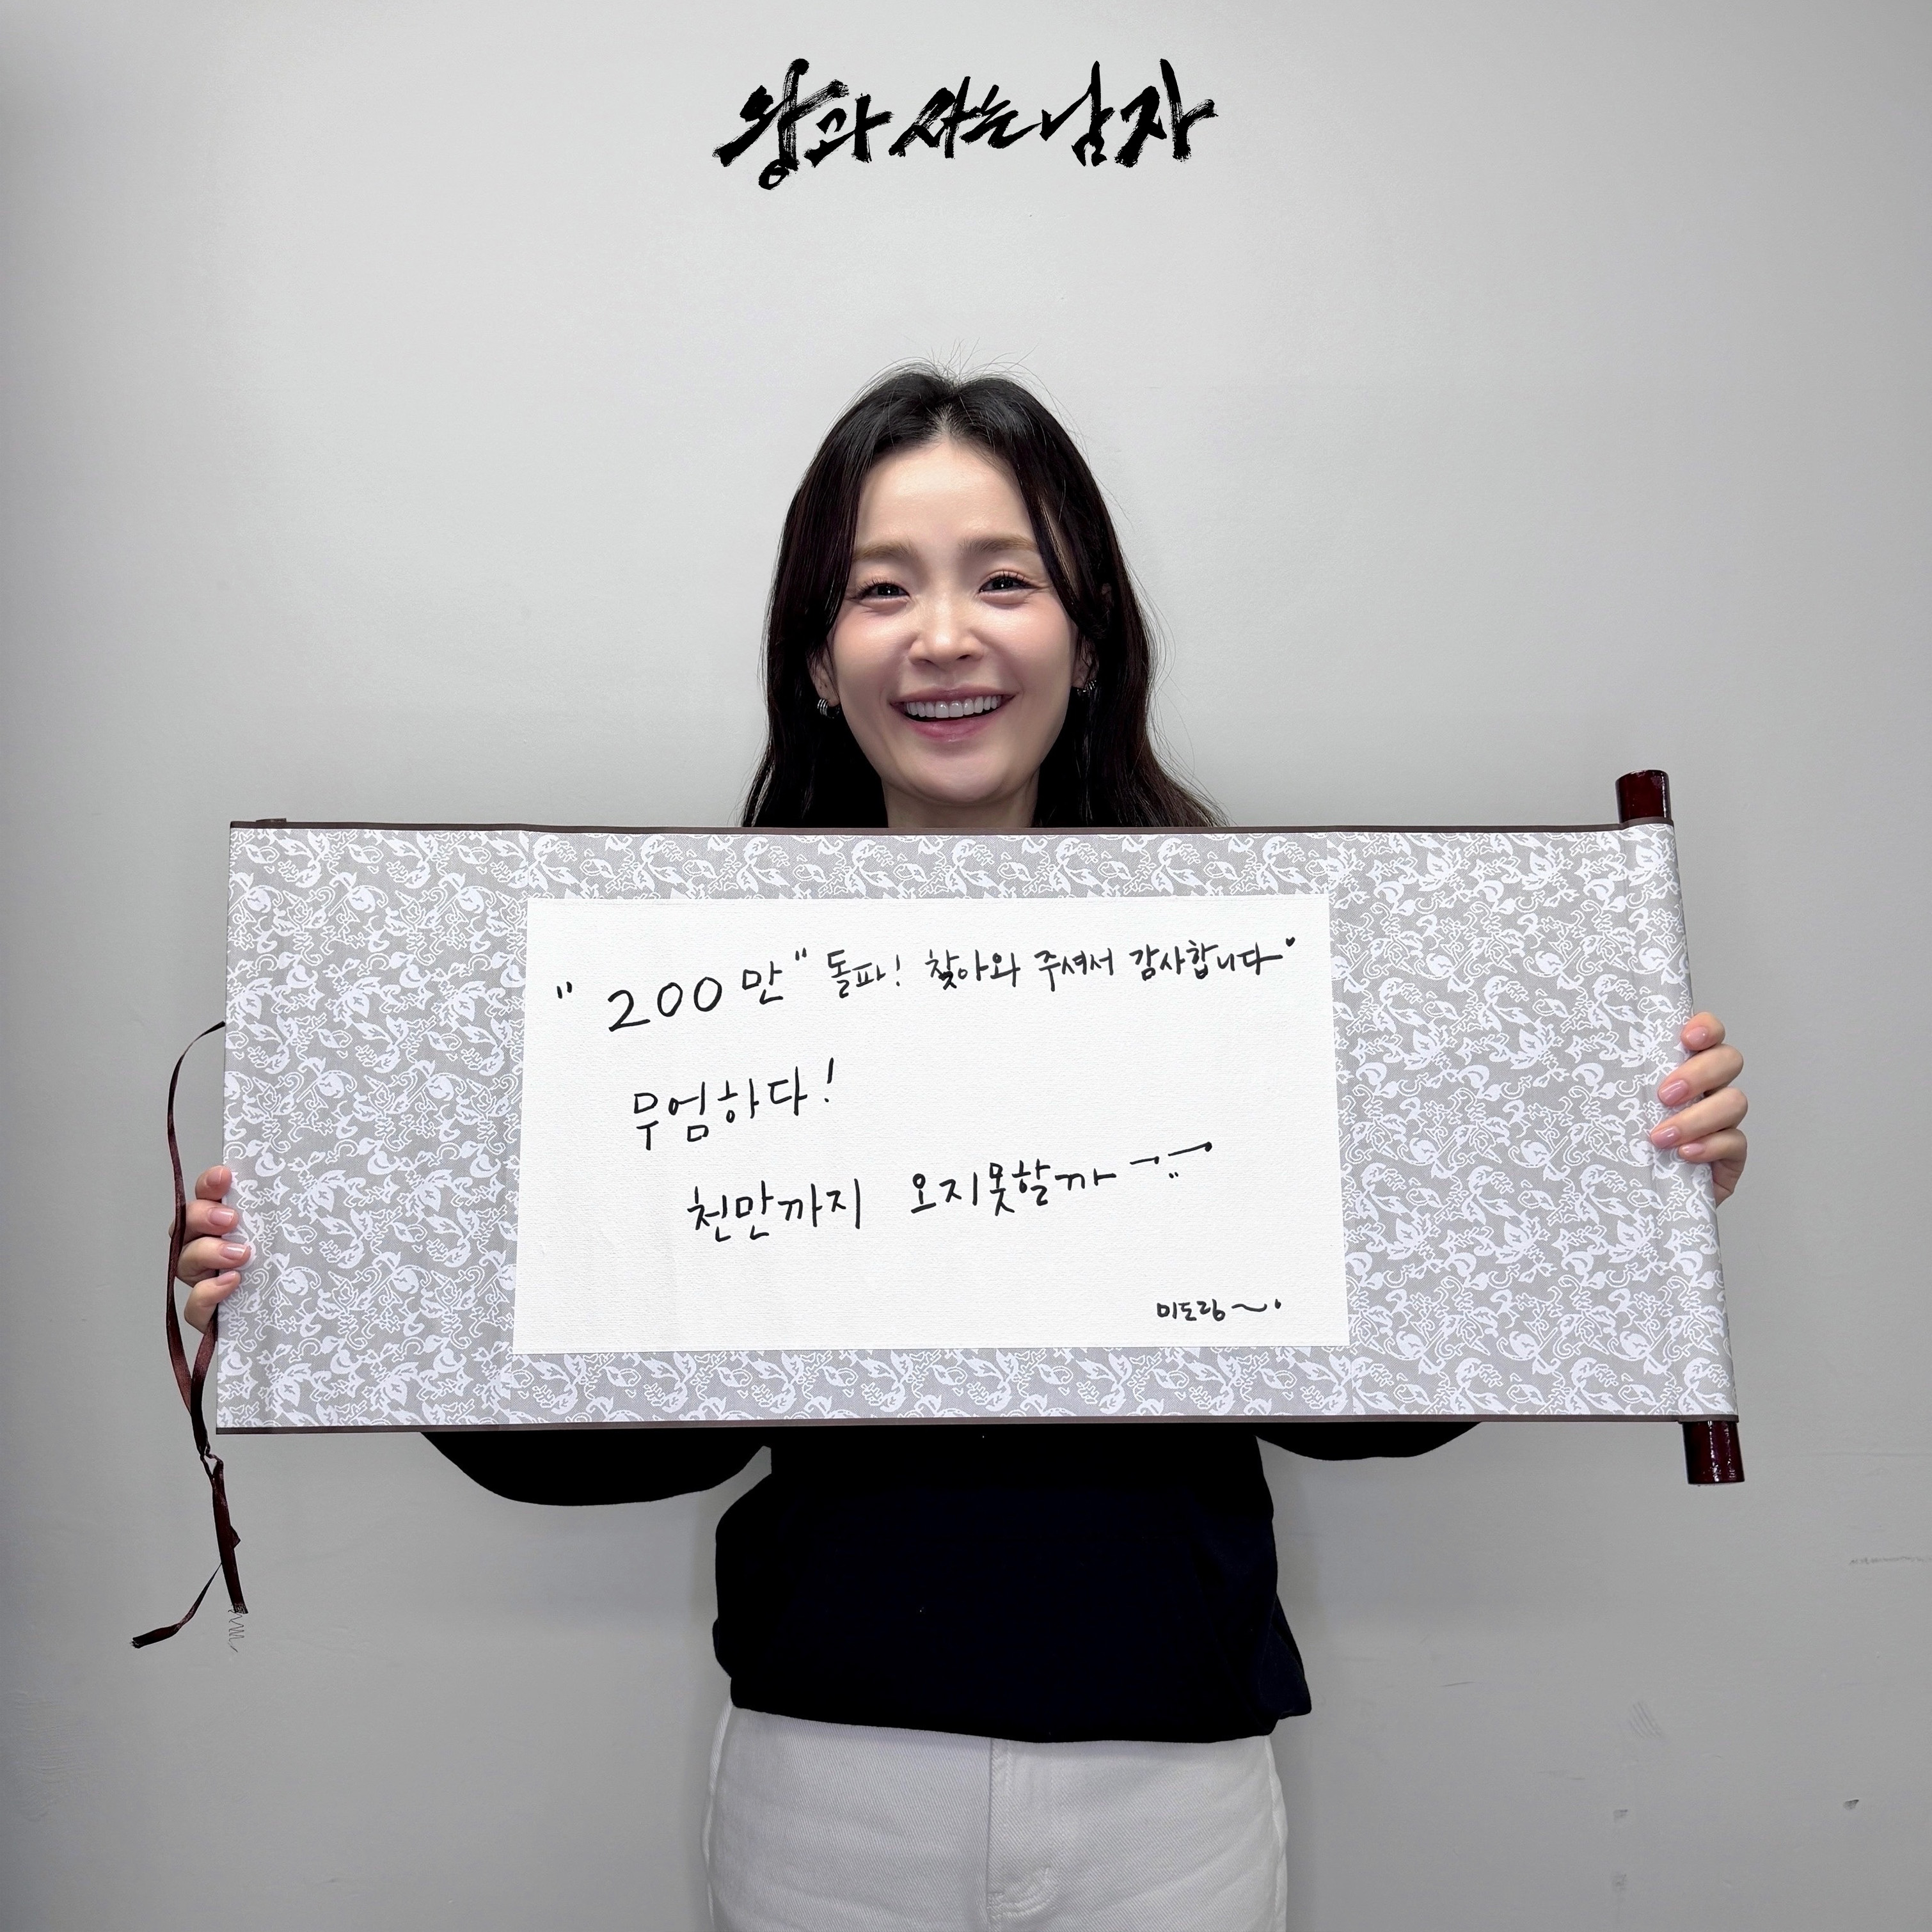 왕과 사는 남자
"200만" 돌파! 찾아와 주셔서 감사합니다
무엄하다!
천만까지 오지못할까
미도랑~